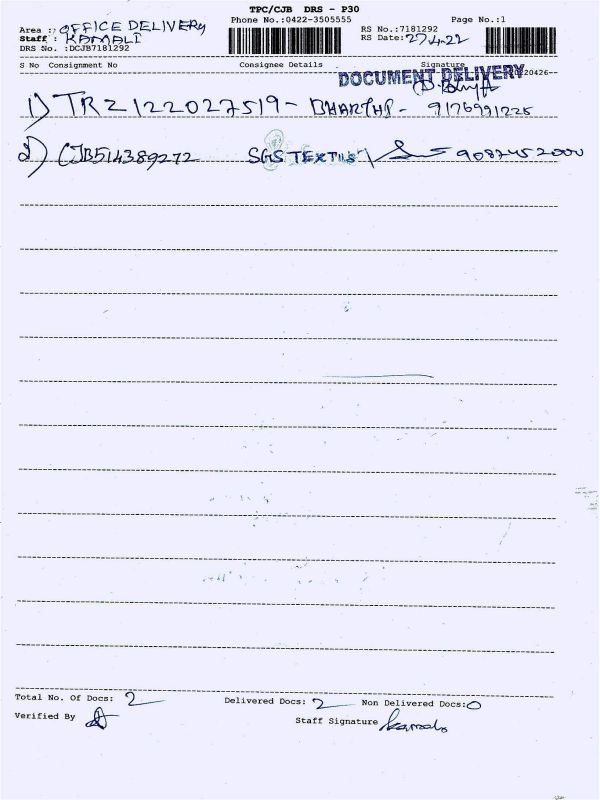 TPC/CJB DRS - P30
Phone No.:0422-3505555 Page No.:1
Area : OFFICE DELIVERY RS No.:7181292
Staff : KAMALI RS Date:27.4.22
DRS No. :DCJB7181292
S No Consignment No Consignee Details Signature
DOCUMENT DELIVERY 20220426-
1) TRZ122027519 - BHARTHI - 9176991225
2) CJB514389272 SGS TEXTILS 9087452000
Total No. Of Docs: 2 Delivered Docs: 2 Non Delivered Docs:0
Verified By Staff Signature Kamali